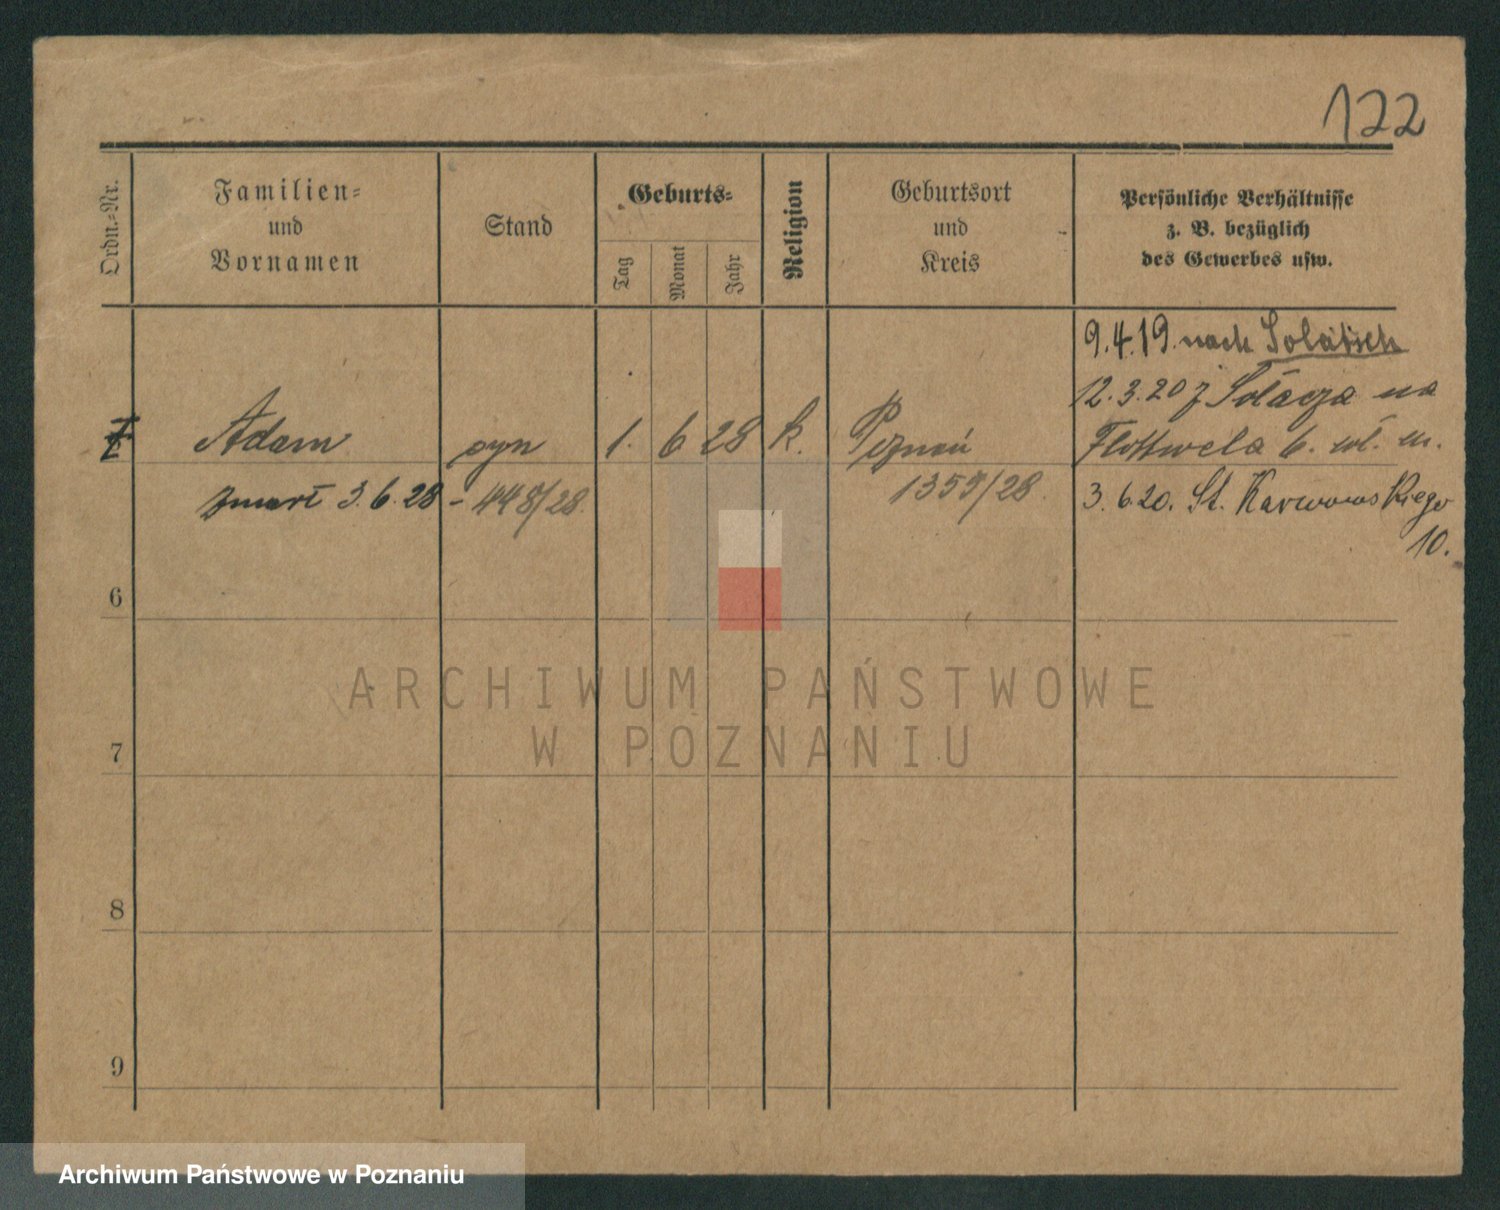 122
Ordn.-Nr.
Familien-
und
Vornamen
Stand
Geburts-
Tag
Monat
Jahr
Religion
Geburtsort
und
Kreis
Persönliche Verhältnisse
z. B. bezüglich
des Gewerbes usw.
9.4.19 nach Solatsch
12.3.20 z Sołacza na
Adam syn 1. 6 28 k. Poznań
Flottwela 6. wł. m.
zmarł 3.6.28 - 448/28.
1355/28.
3.6.20. St. Karwowskiego
10.
6
7
8
9
ARCHIWUM PAŃSTWOWE
W POZNANIU
Archiwum Państwowe w Poznaniu